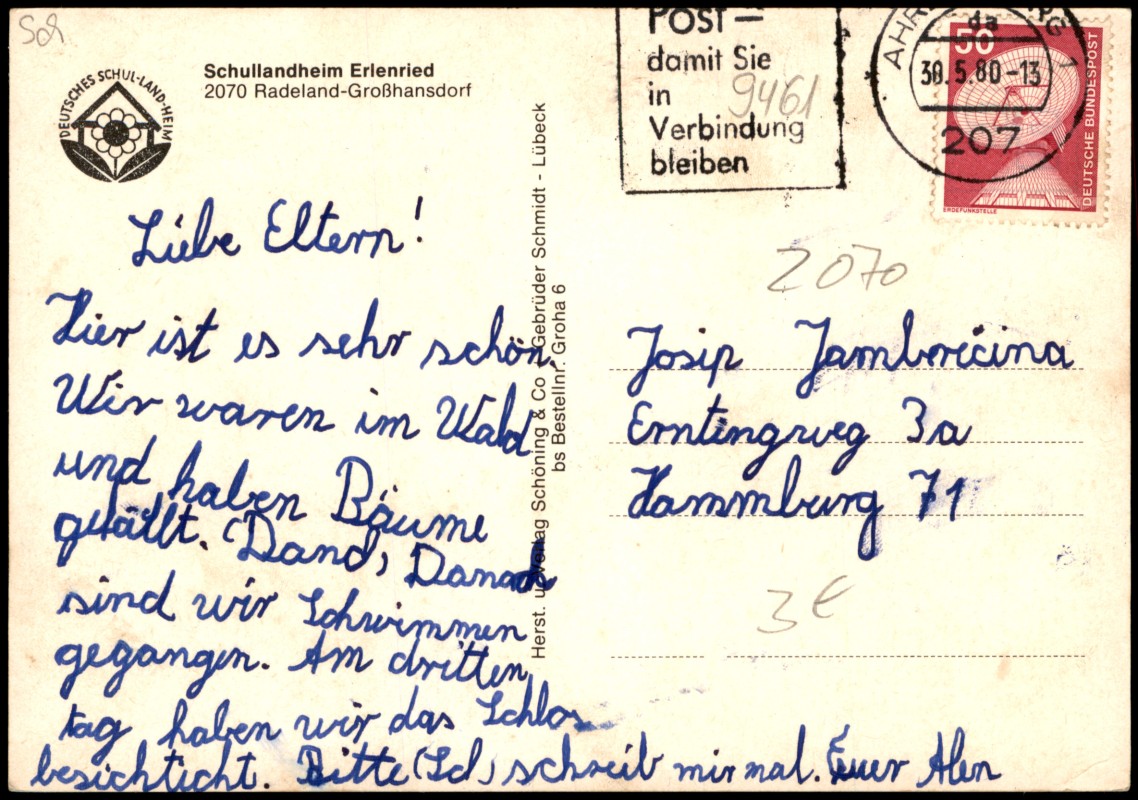 Sch
DEUTSCHES SCHUL-LAND-HEIM
Schullandheim Erlenried
2070 Radeland-Großhansdorf
POST –
damit Sie
in
Verbindung
bleiben
9461
da
30.5.80-13
207
1
50
DEUTSCHE BUNDESPOST
ERDEFUNKSTELLE
Liebe Eltern!
Hier ist es sehr schön.
Wir waren im Wald
und haben Bäume
gefällt. (Dand) Danach
sind wir Schwimmen
gegangen. Am dritten
tag haben wir das Schlos
besichticht. Bitte (Sch) schreib mir mal. Euer Alen
Herst. u. Verlag Schöning & Co + Gebrüder Schmidt - Lübeck
bs Bestellnr. Groha 6
2070
Josip Jambrićina
Erntingweg 3a
Hammburg 71
3€